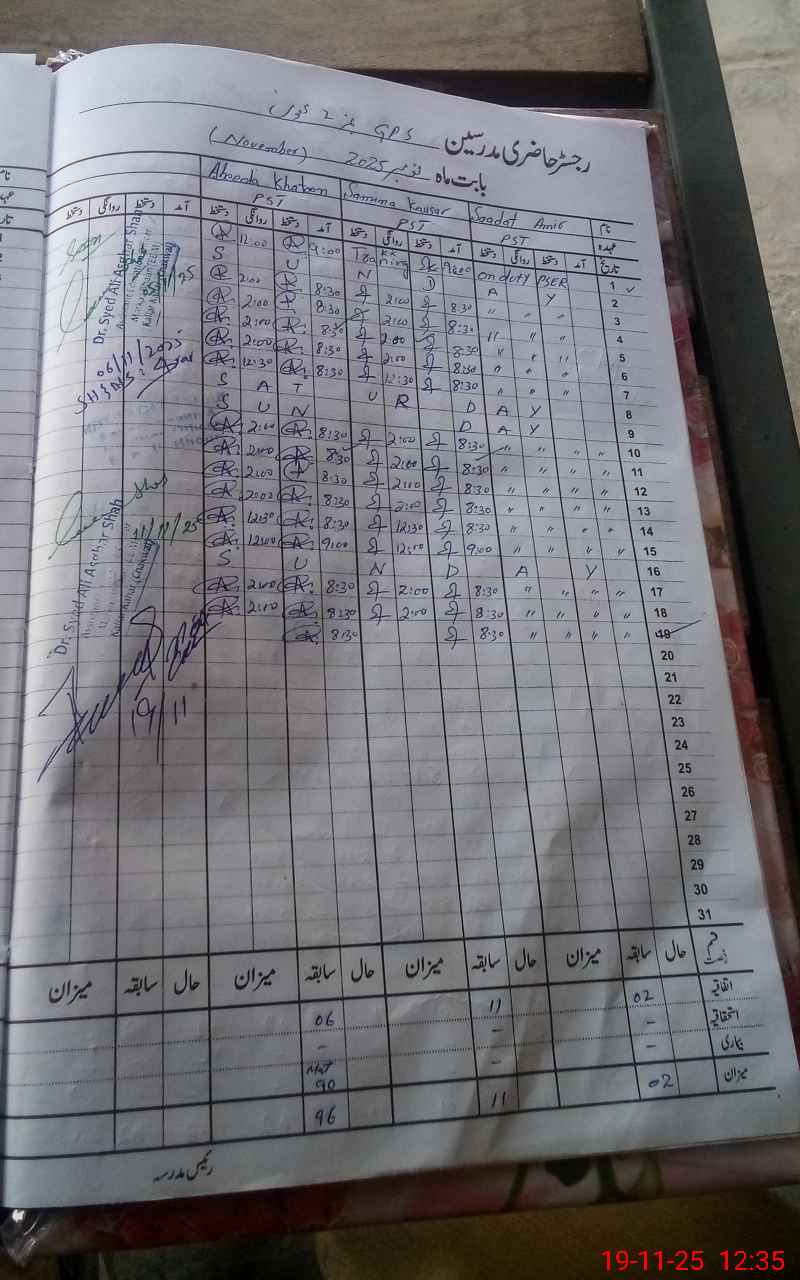 رجسٹر حاضری مدرسین GPS
بابت ماہ نومبر 2025 (November)
نام Saadat Amir Samina Kausar Abeeda Khatoon
عہدہ PST PST PST
تاریخ آمد دستخط روانگی دستخط آمد دستخط روانگی دستخط آمد دستخط روانگی دستخط آمد دستخط روانگی دستخط
1 on duty PSER 9:00 Training 9:00 12:00
2 S U N D A Y
3 " " " 8:30 2:00 8:30 2:00
4 " " " 8:30 2:00 8:30 2:00
5 " " " 8:30 2:00 8:30 2:00
6 " " " 8:30 2:00 8:30 2:00
7 " " " 8:30 12:30 8:30 12:30
8 S A T U R D A Y
9 S U N D A Y
10 " " " " 8:30 2:00 8:30 2:00
11 " " " " 8:30 2:00 8:30 2:00
12 " " " " 8:30 2:00 8:30 2:00
13 " " " " 8:30 2:00 8:30 2:00
14 " " " " 8:30 12:30 8:30 12:30
15 " " " " 9:00 12:00 9:00 12:00
16 S U N D A Y
17 " " " " 8:30 2:00 8:30 2:00
18 " " " " 8:30 2:00 8:30 2:00
19 " " " " 8:30 8:30
20
21
22
23
24
25
26
27
28
29
30
31
Dr. Syed Ali Asghar Shah
06/11/2025
Dr. Syed Ali Asghar Shah
19/11
قسم رخصت حال سابقہ میزان حال سابقہ میزان حال سابقہ میزان حال سابقہ میزان
اتفاقیہ 02 11 06
استحقاقیہ - - -
بیماری - - 90
میزان 02 11 96
رئیس مدرسہ
19-11-25 12:35